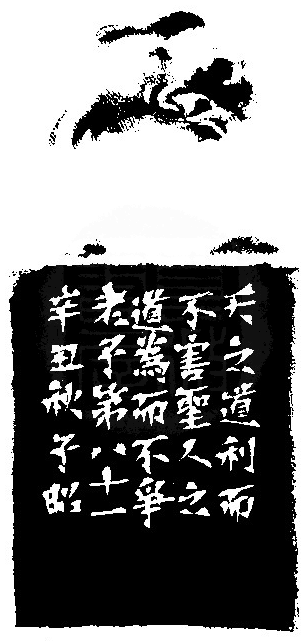 天之道利而
不害聖人之
道為而不爭
老子第八十一
辛丑秋子昭